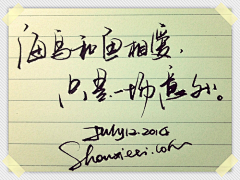 海鸟和鱼相爱,
只是一场意外。
July 12. 2014
Shouxieti.com